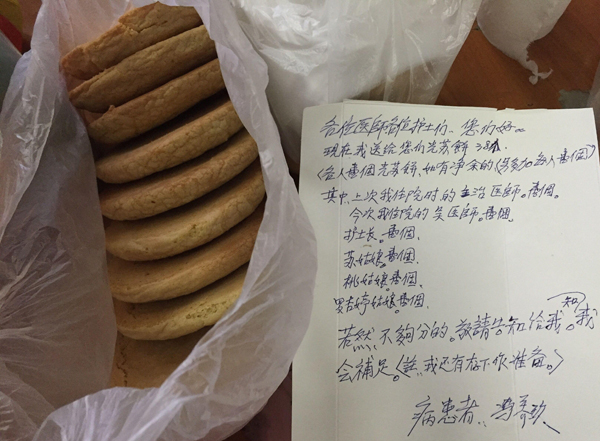 各位医師各位护士们.. 您们好。
現在我送给您们光苏餅38个
(每人壹個光苏餅、如有净余的(多加每人壹個)
其中、上次我住院时的主治医師。壹個。
今次我住院的吴医師。壹個、
护士长。壹個、
苏姑娘。壹個、
桃姑娘壹個、
婷姑娘。壹個、
若然、不夠分的。敬請告知给我。我
会補足。(註..我还有存下作准备。)
病患者..